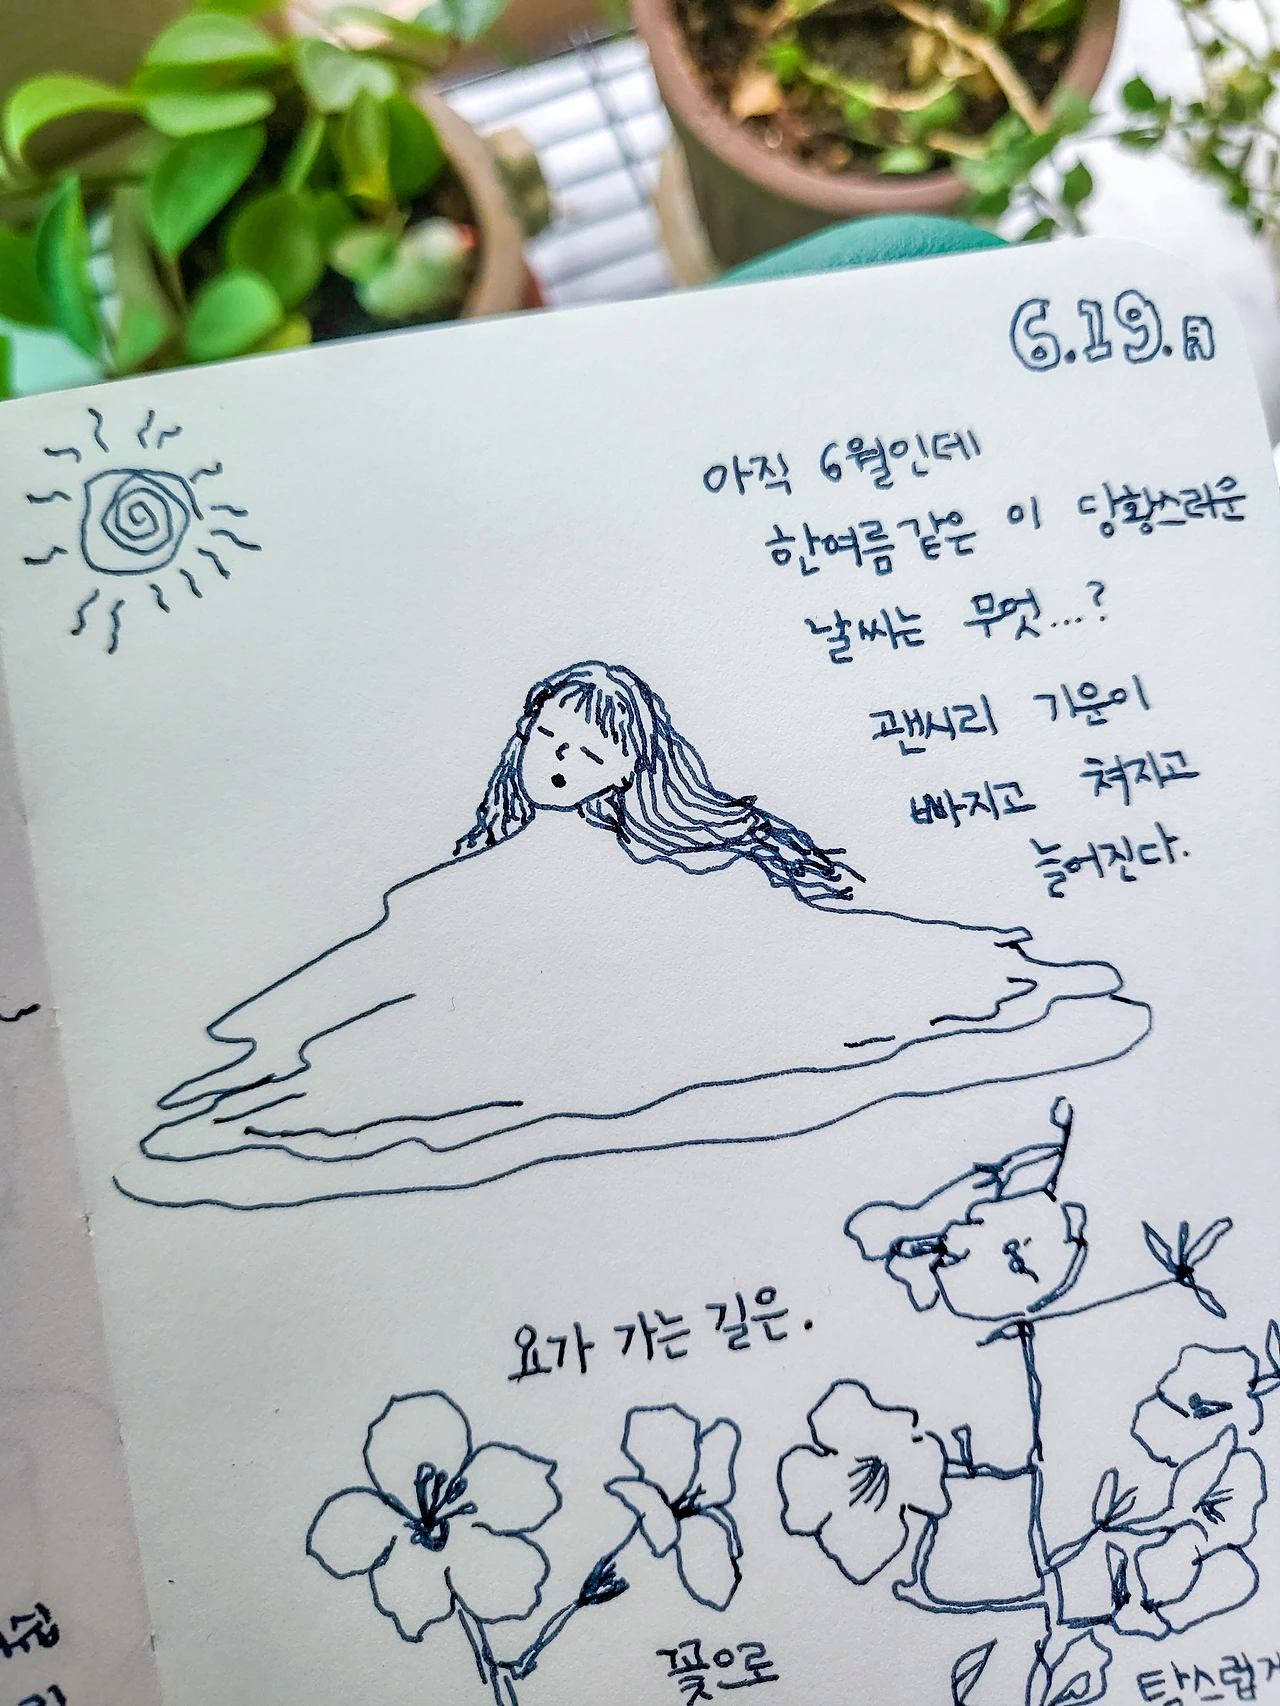 6.19.月
아직 6월인데
한여름같은 이 당황스러운
날씨는 무엇...?
괜시리 기운이
빠지고 쳐지고
늘어진다.
요가 가는 길은.
꽃으로
탐스럽게